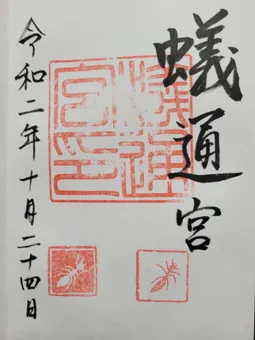 蟻通宮
蟻通宮印
令和二年十月二十四日